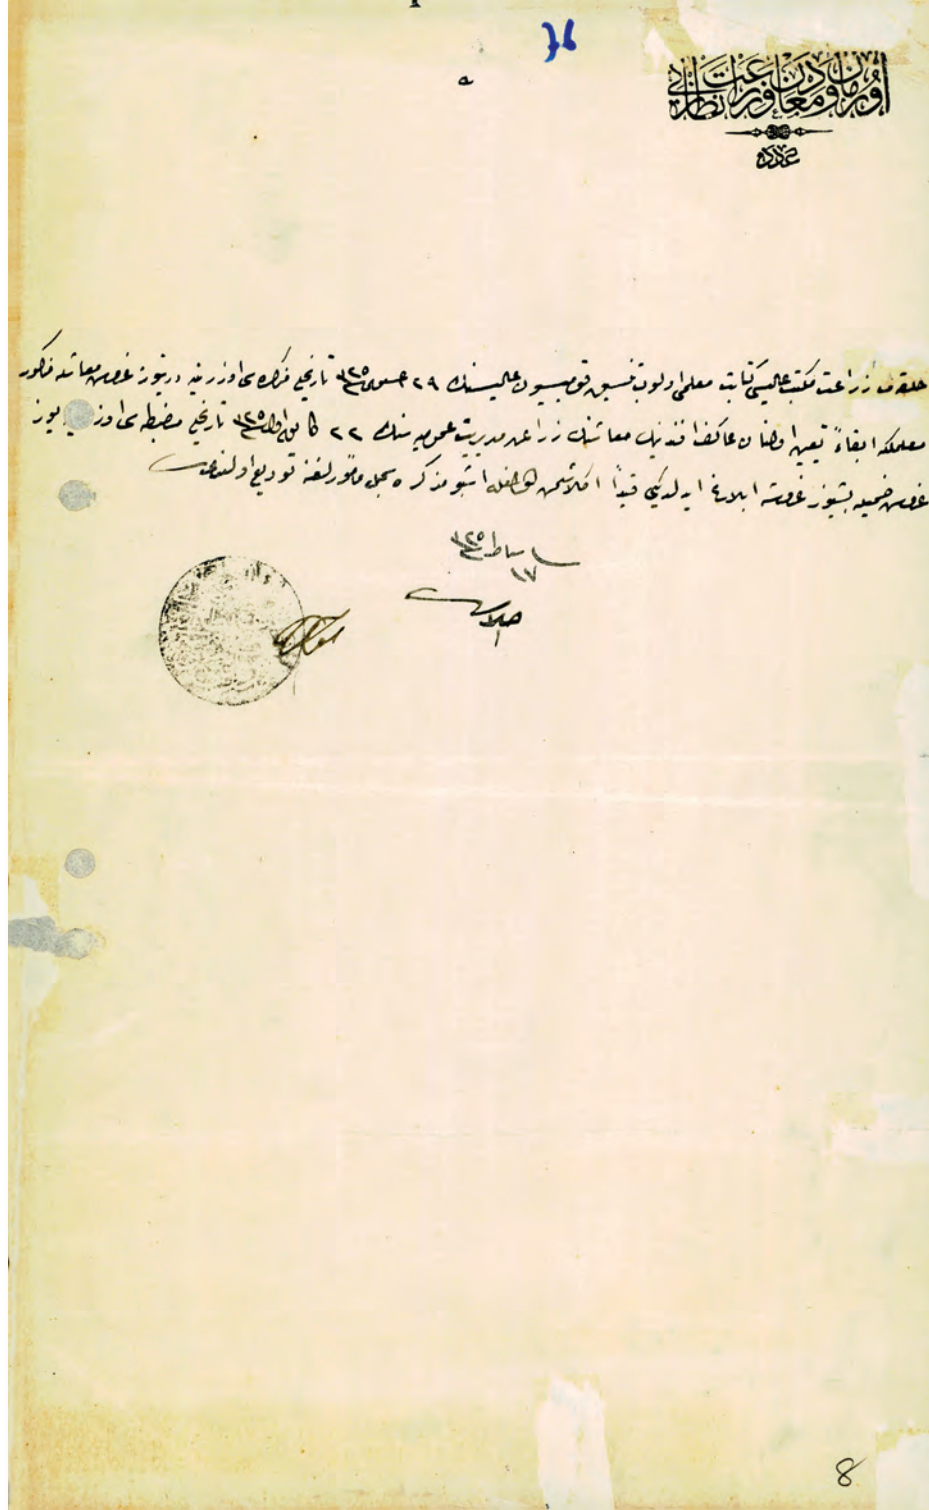 ٧٦
٥
اورمان ومعادن وزراعت نظارتی
عدد
حلقه‌لی زراعت مکتب عالیسی کتابت معلمی اولوب تنسیق قومیسیون عالیسنك ٢٩ ٣٢٥ تاریخلی تذکره‌سی اوزرینه درتیوز غروش معاشله مذکور
معلملکه ابقاءً تعیین اولنان عاکف افندینك معاشنك زراعت مدیریت عمومیه‌سنك ٢٢ کانون اول ٣٢٥ تاریخلی مضبطه‌سی یوز
غروش ضمیمه بشیوز غروشه ابلاغ ایدلدیکی قیداً اکلاشلمش اشبو مذکره سجل مأمورلغنه تودیع اولنمشدر
١٧ شباط ٣٢٥
8